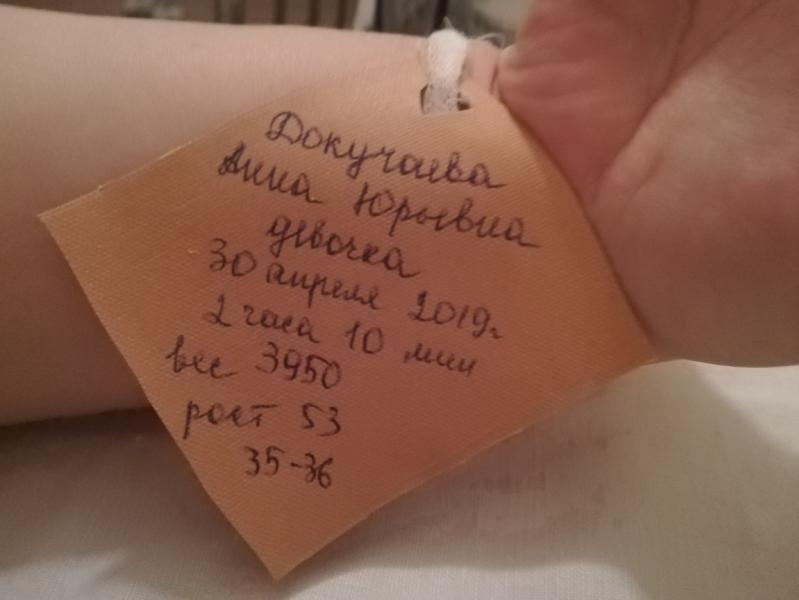 Докучаева
Анна Юрьевна
девочка
30 апреля 2019г
2 часа 10 мин
вес 3950
рост 53
35-36